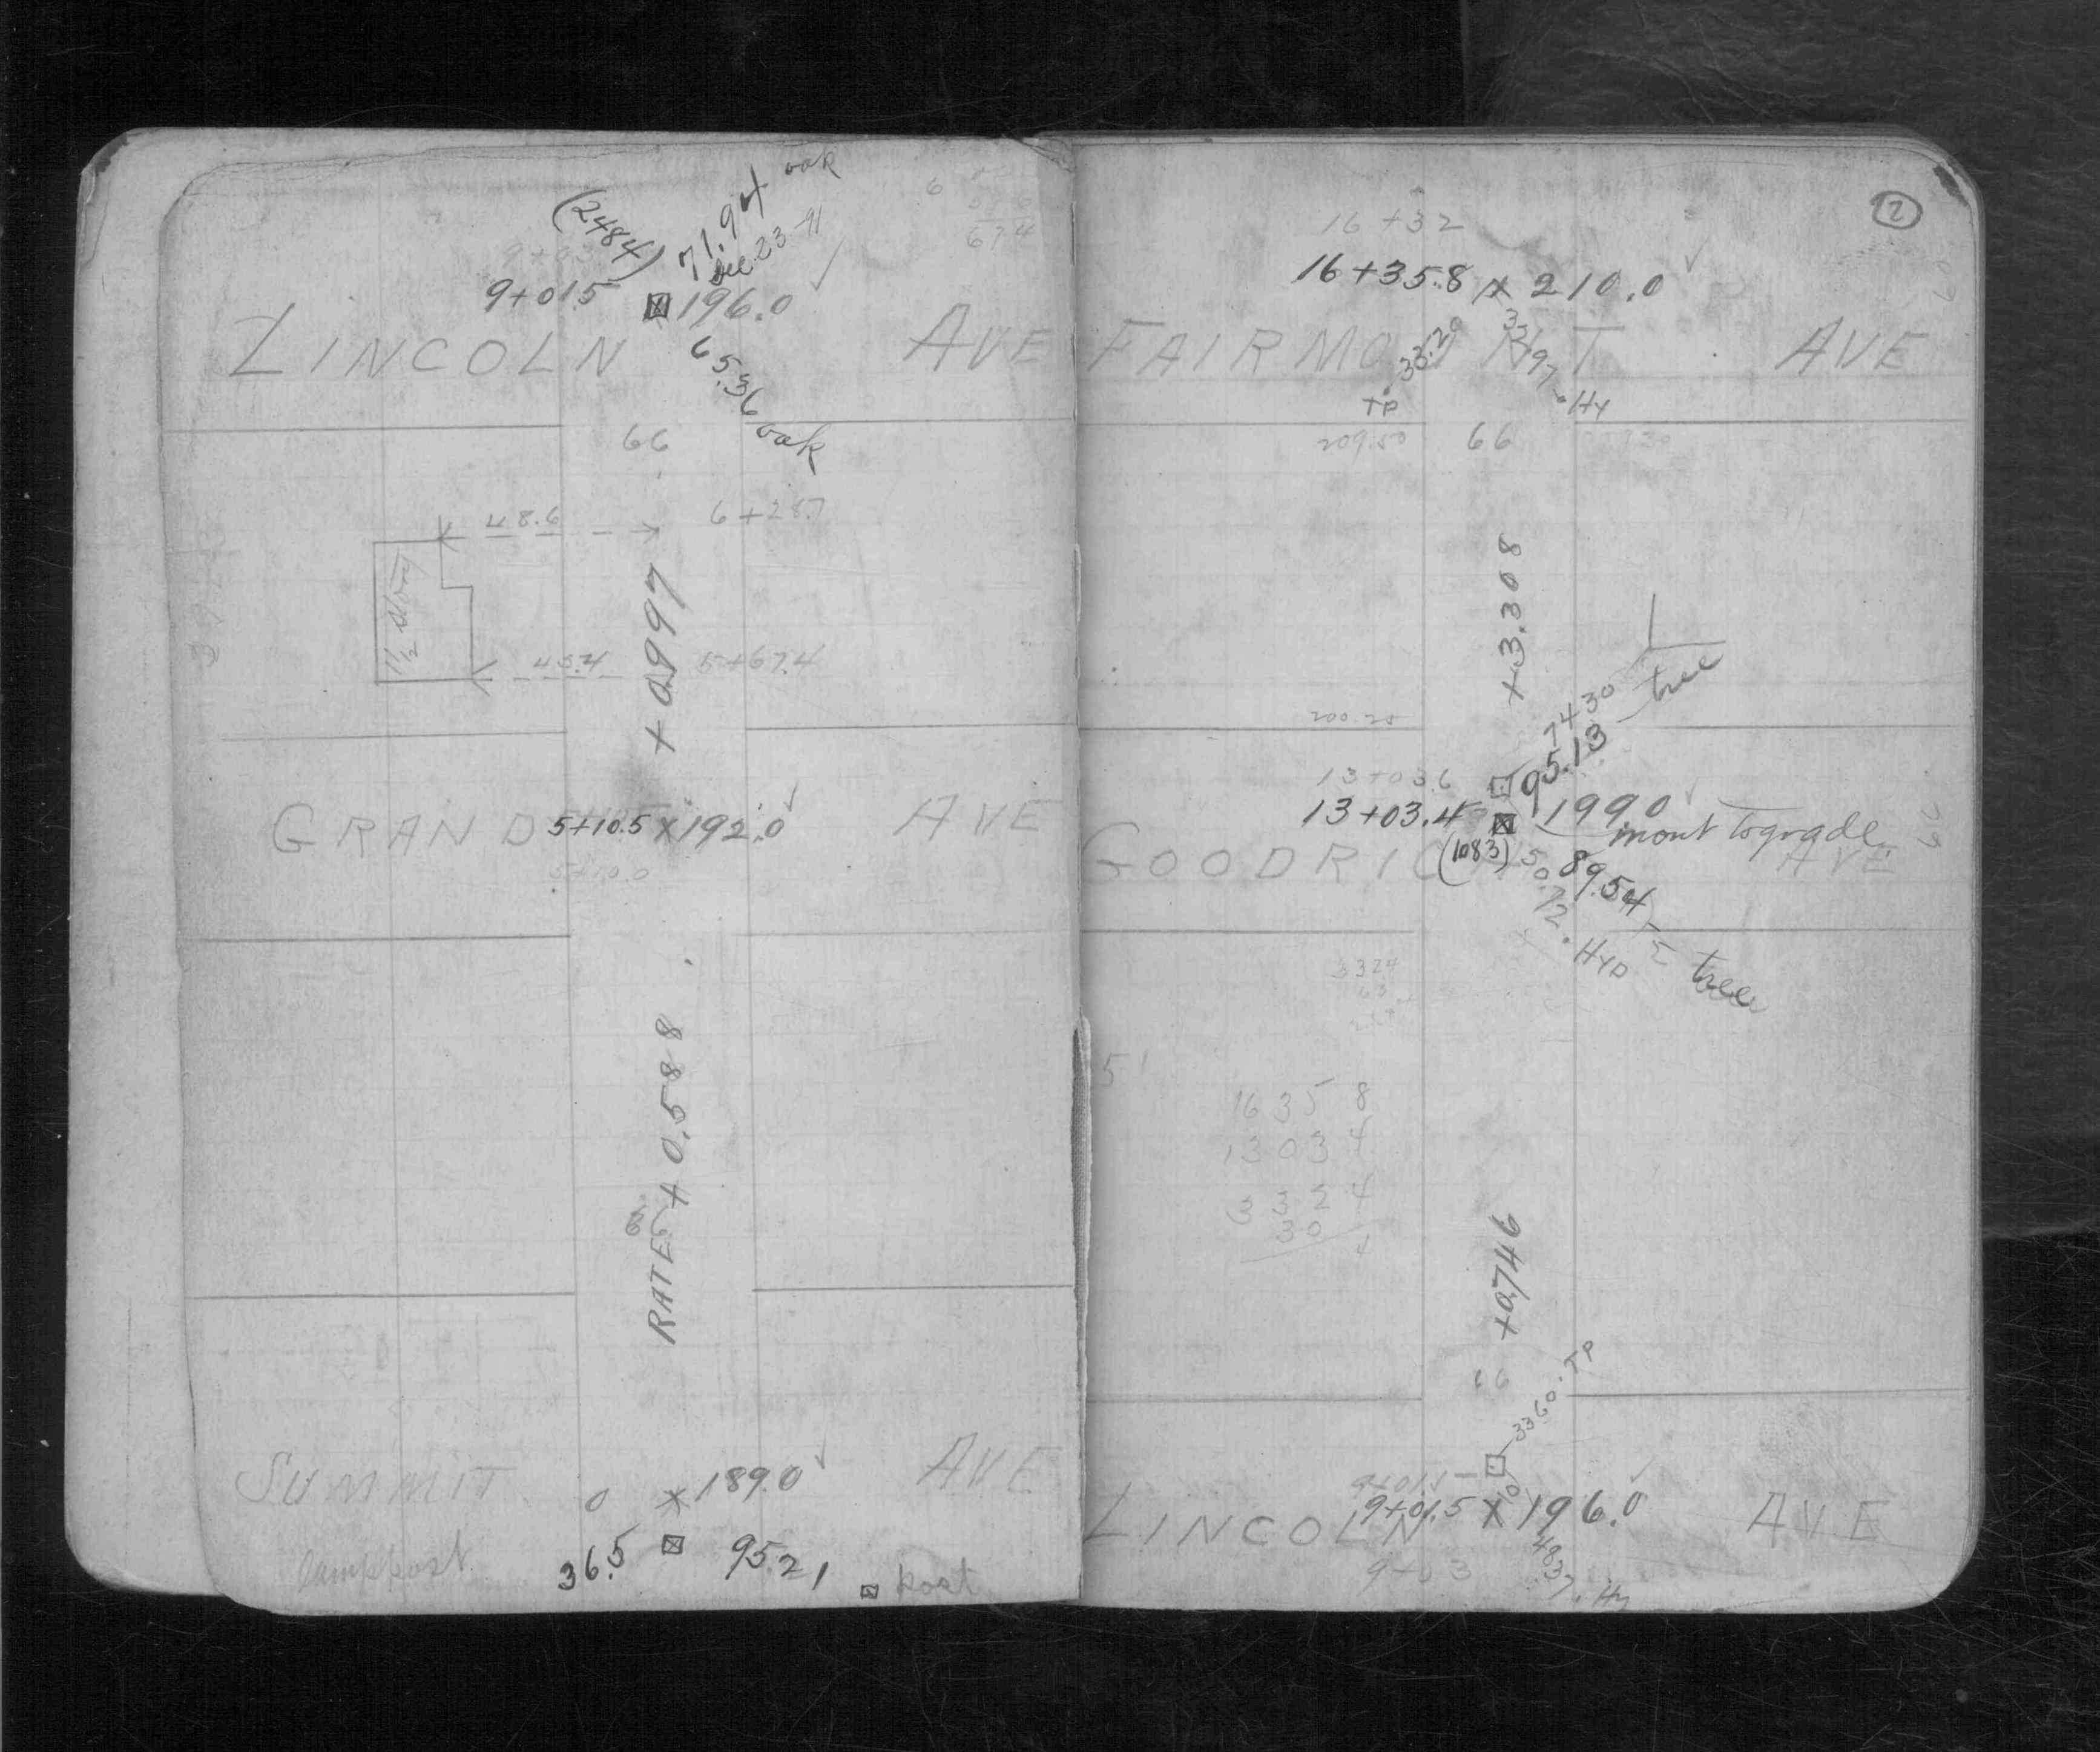 oak
71.94
(2484)
Dec. 23-91
9+03
9+015 196.0
LINCOLN AVE
65.36 oak
66
48.6 6+28.7
1½ Story
45.4 5+67.4
+0.997
GRAND 5+10.5 x 192.0 AVE
5+10.0
RATE +0.588
66
SUMMIT 0 x 189.0 AVE
Lamp post 36.5 95.21 post
2
16+32
16+35.8 x 210.0
FAIRMOUNT AVE
33.29 33.97
TP Hy
209.50 66
+3.308
tree
200.20
74.30
95.13
13+03.6
13+03.4 199.0
mont to grade
(1083)
GOODRICH AVE
50.72 89.54
Hyd tree
3324
1635 8
1303 4
332 4
30
4
+0.746
66
33.60 TP
9+01.5
9+01.5 x 196.0
LINCOLN AVE
9+03
48.37 Hy